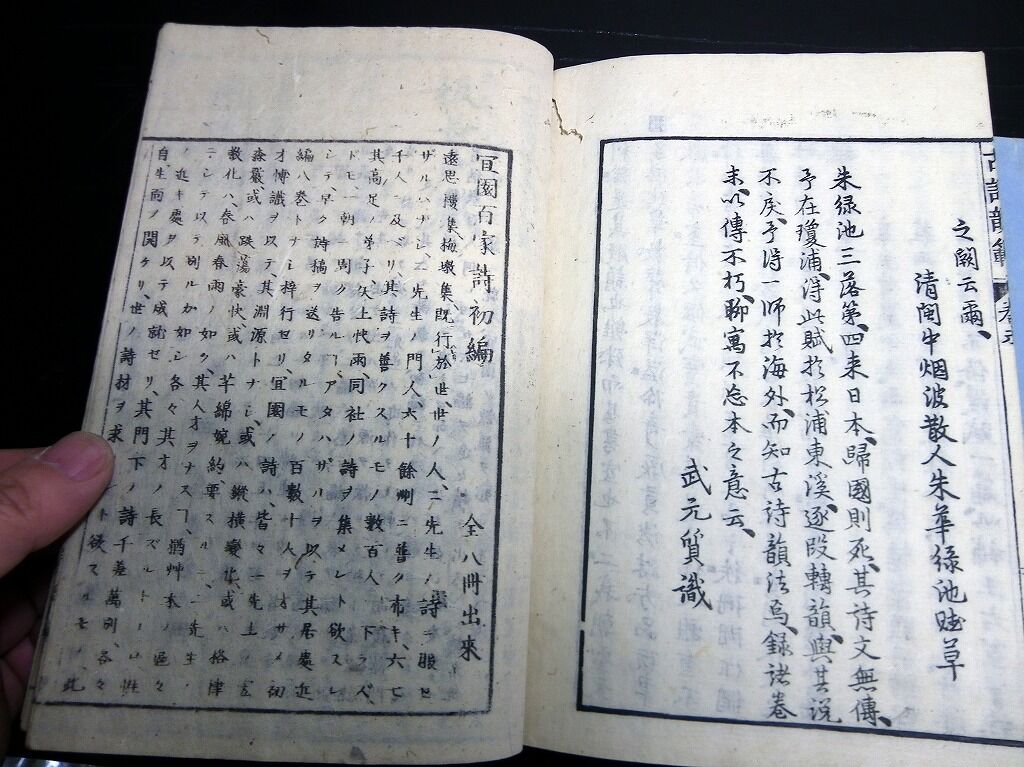 之闕云爾
清閩中烟波散人朱華緑池賦草
朱緑池三落第、四来日本、歸國則死、其詩文無傳、
予在瓊浦、得此賦於松浦東溪、逐段轉韻、與其説
不戻、予得一師於海外、而知古詩韻法焉、録諸卷
末、以傳不朽、聊寓不忘本之意云、
武元質識
宜園百家詩初編 全八冊出來
遠思樓集、梅墩集、既行於世、世ノ人、二先生ノ詩ニ服セ
ザルハナシ、二先生ノ門人六十餘州ニ普ク布キ、六七
千人ニ及ベリ、其詩ヲ善クスルモノ數百人ニ下ラズ、
其高足ノ弟子矢上快雨、同社ノ詩ヲ集メント欲スレ
ドモ、一朝ニ周ク告ルコアタハザルヲ以テ其居處近
シテ、早ク詩稿ヲ送リタルモノ百數十人ヲオサメ、初
編八巻トナシ梓行セリ、宜園ノ詩ハ、皆々二先生ノ
才博識ヲ以テ、其淵源トナシ、或ハ縱横變化、或ハ格律
森嚴、或ハ跌蕩豪快、或ハ芊綿婉約、要スルニ二先生ノ
教化ハ、春風春雨ノ如ク、其人オヲナス
ニシテ以テ別ルカ如シ、各々其才ノ長ズル
近キ處ヲ以テ成就セリ、其門下ノ詩千差萬別、各々
自ノ生面ノ関ケリ、世ノ詩材ヲ求ント欲スルモノ、此